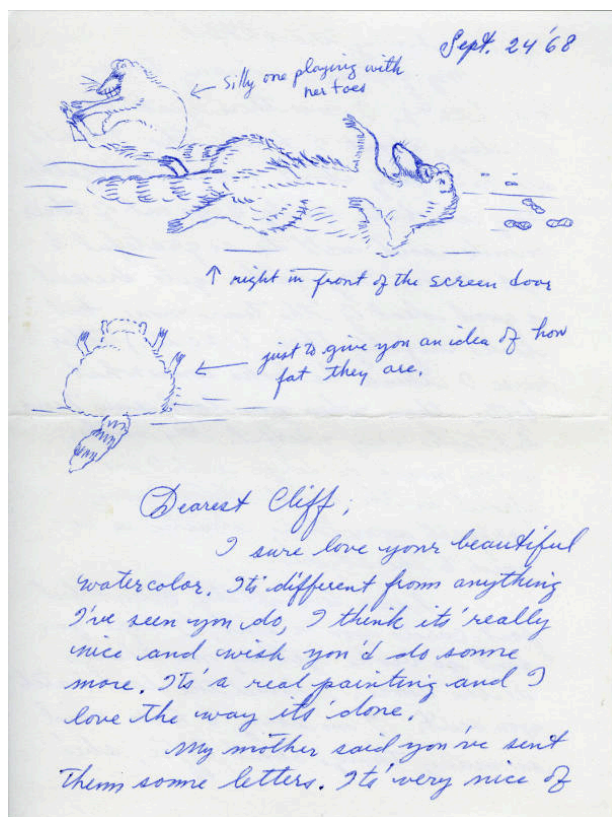 Sept. 24 '68
silly one playing with
her toes
right in front of the screen door
just to give you an idea of how
fat they are.
Dearest Cliff;
I sure love your beautiful
watercolor. Its' different from anything
I've seen you do, I think its' really
nice and wish you'd do some
more. Its' a real painting and I
love the way its' done.
My mother said you've sent
them some letters. Its' very nice of